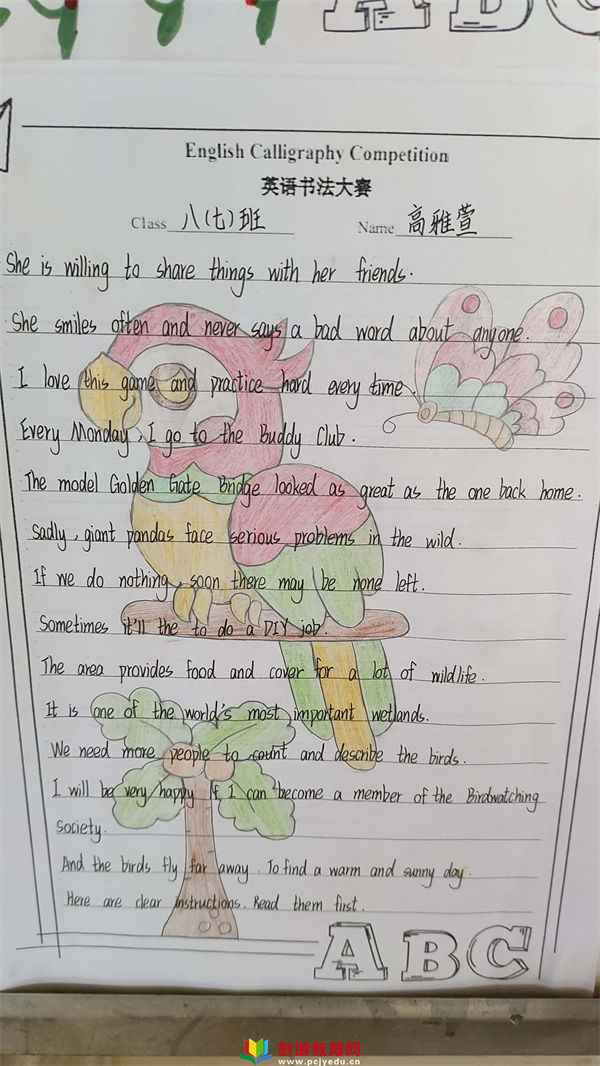 ABC
English Calligraphy Competition
英语书法大赛
Class 八(七)班 Name 高雅萱
She is willing to share things with her friends.
She smiles often and never says a bad word about anyone.
I love this game and practice hard every time.
Every Monday, I go to the Buddy Club.
The model Golden Gate Bridge looked as great as the one back home.
Sadly, giant pandas face serious problems in the wild.
If we do nothing, soon there may be none left.
Sometimes it'll the to do a DIY job.
The area provides food and cover for a lot of wildlife.
It is one of the world's most important wetlands.
We need more people to count and describe the birds.
I will be very happy if I can become a member of the Birdwatching
society.
And the birds fly far away. To find a warm and sunny day.
Here are clear instructions. Read them first.
ABC
www.pcjyedu.cn